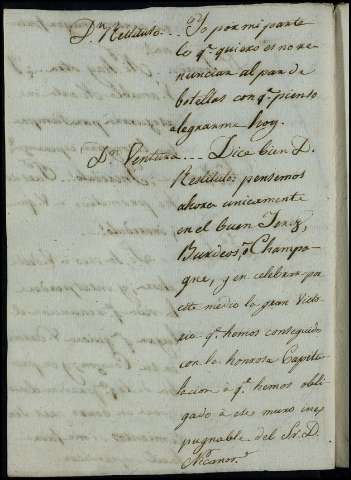 D.n Restituto... Yo por mi parte
lo q.e quiero es no re
nunciar al par de
botellas con q.e pienso
alegrarme hoy.
D.n Ventura... Dice bien D.
Restituto; pensemos
ahora unicamente
en el buen Jerez,
Burdeos, o Champa-
gne, y en celebrar por
este medio la gran Victo
ria q.e hemos conseguido
con la honrosa Capitu
lacion á q.e hemos obli
gado à ese muro inex
pugnable del Sr. D.
Nicanor.